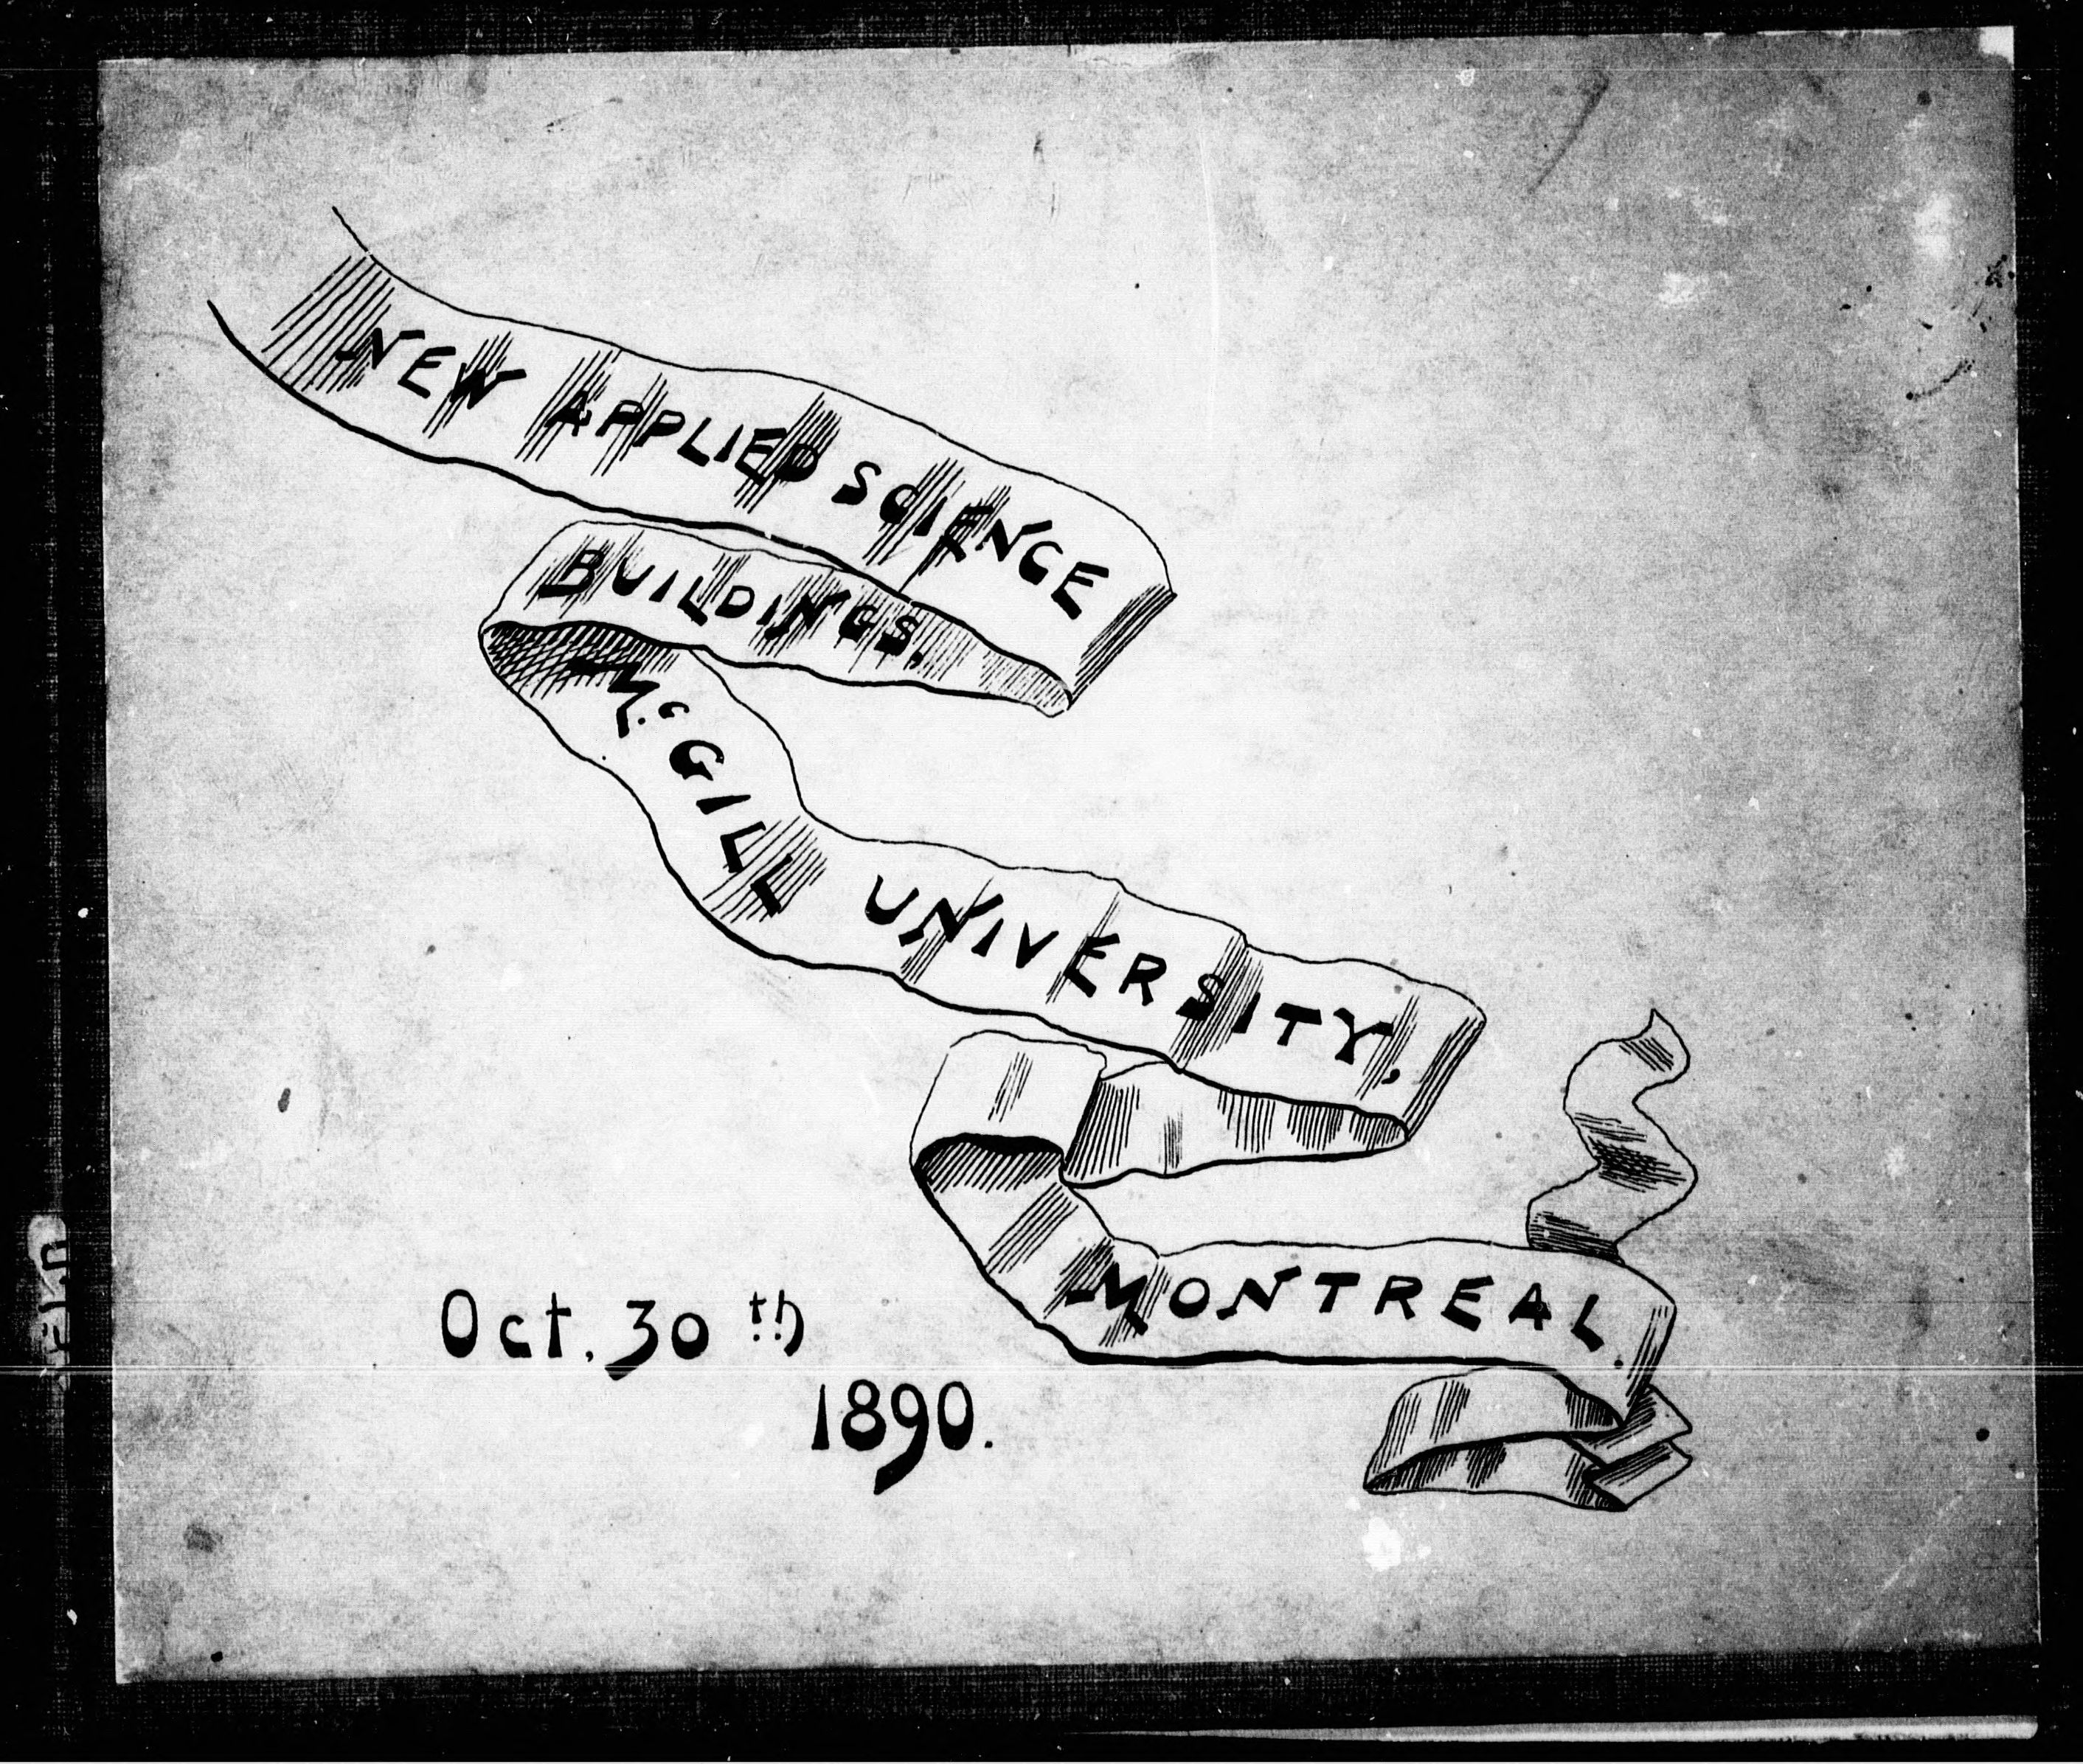 NEW APPLIED SCIENCE
BUILDINGS.
McGILL UNIVERSITY,
MONTREAL.
Oct. 30th
1890.